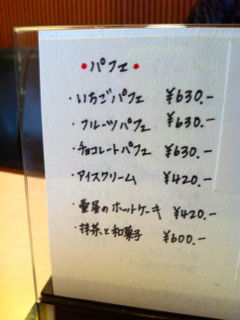 ●パフェ●
・いちごパフェ ¥630.-
・フルーツパフェ ¥630.-
・チョコレートパフェ ¥630.-
・アイスクリーム ¥420.-
・壷屋のホットケーキ ¥420.-
・抹茶と和菓子 ¥600.-